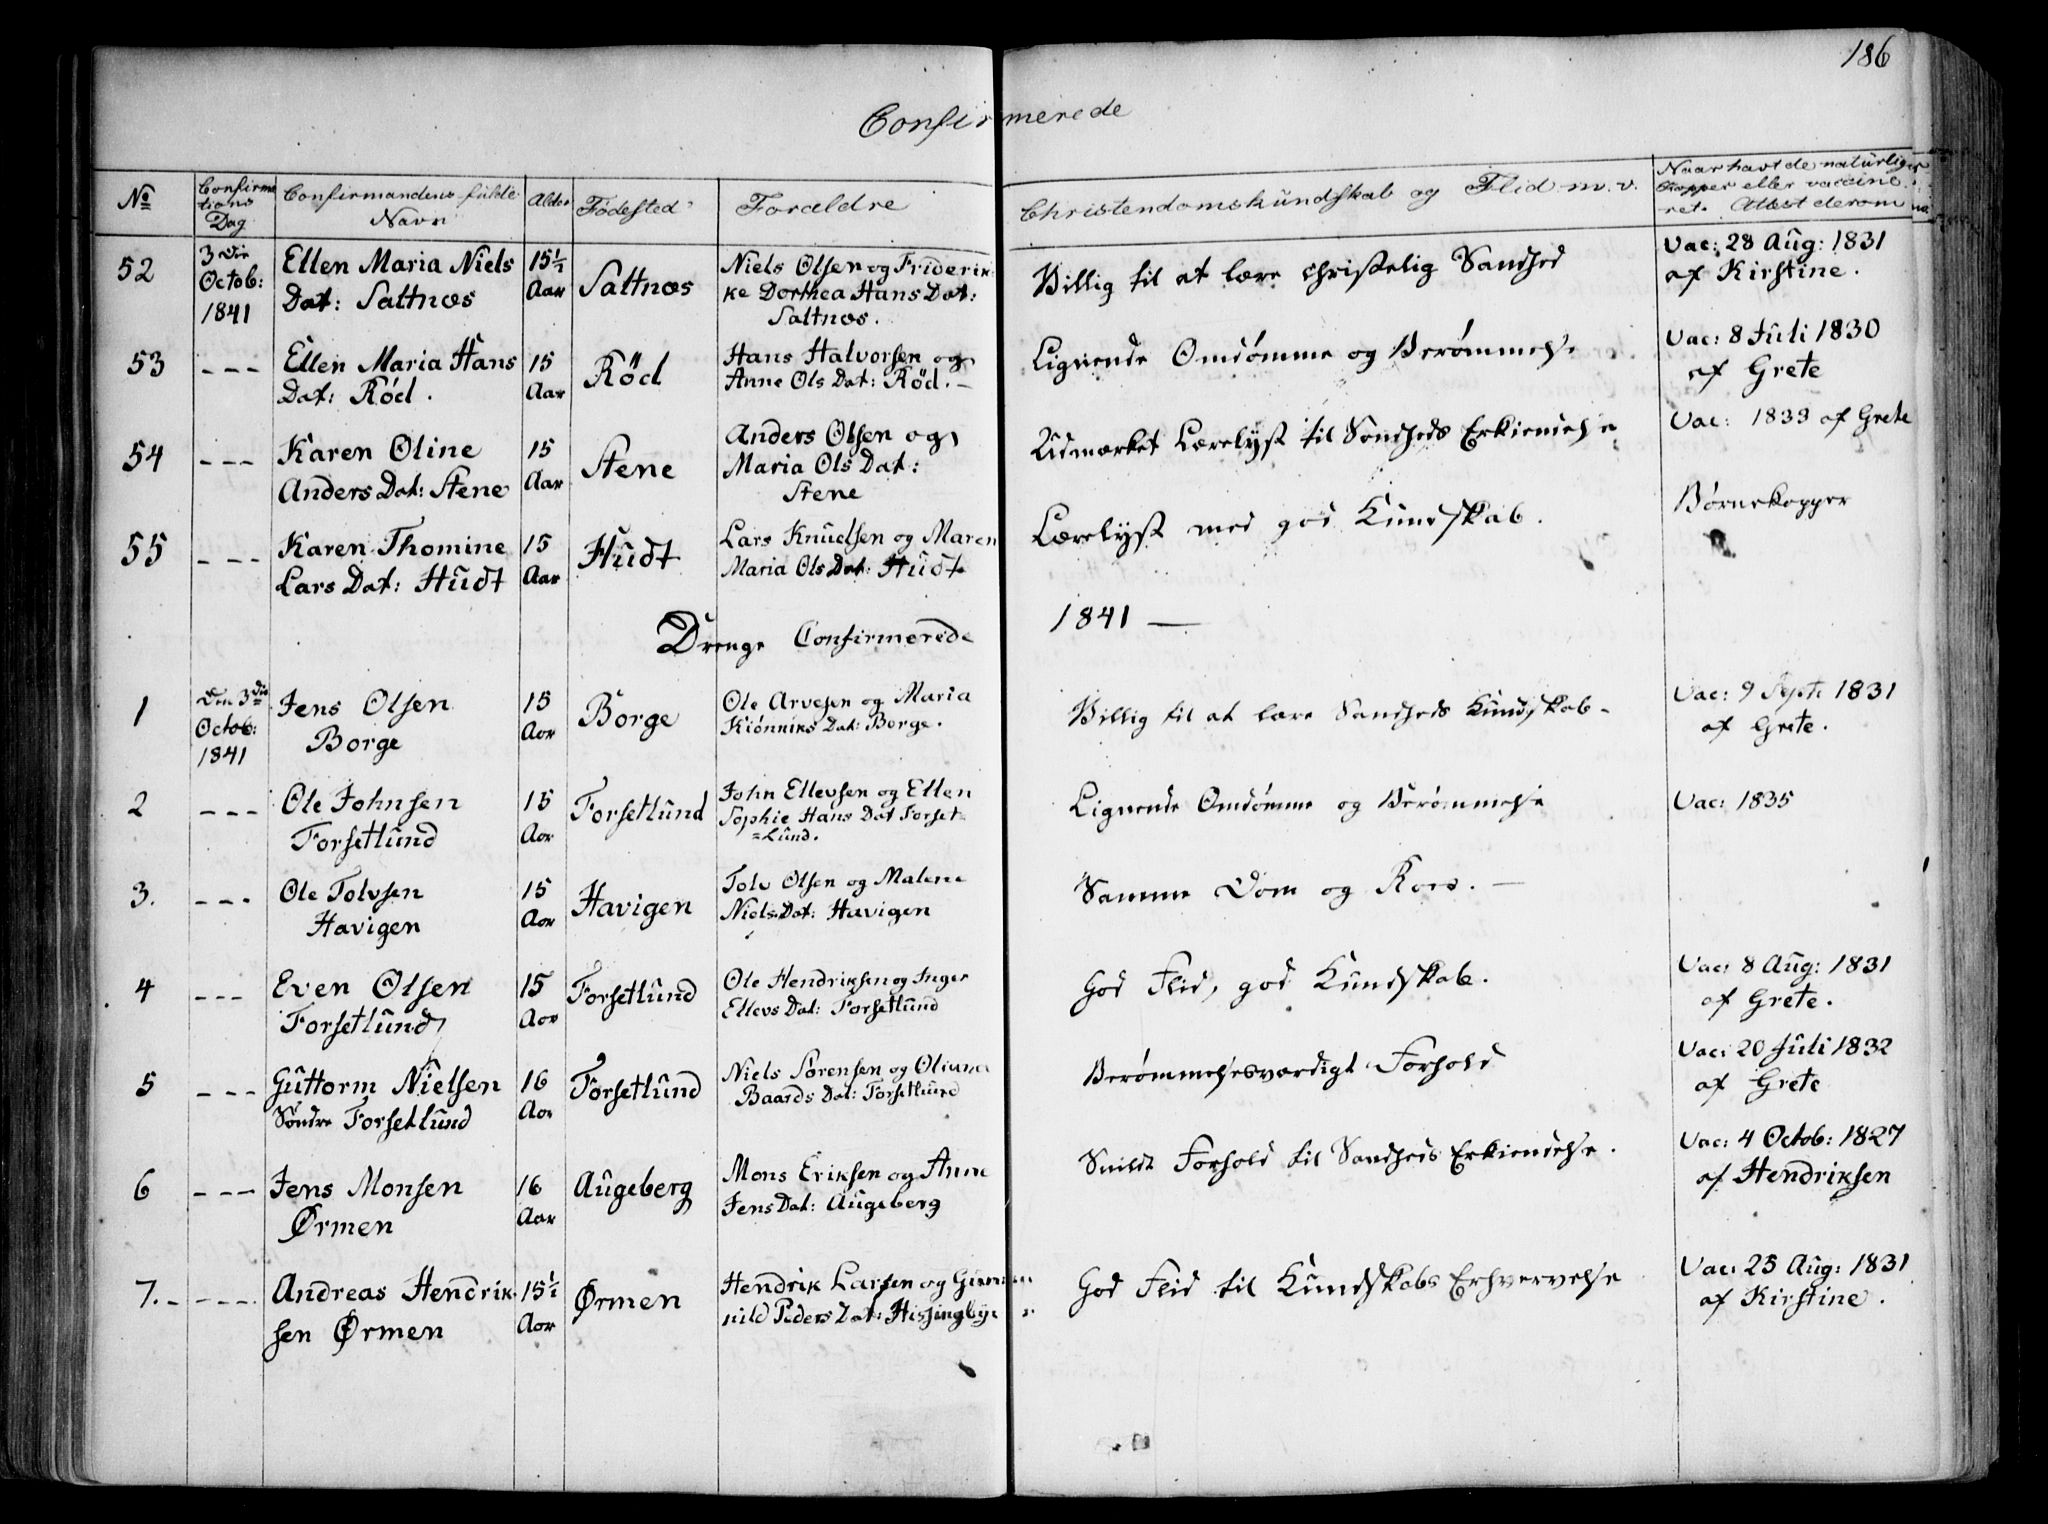 186
Confirmerede
No
Confirmations Dag
Confirmandens fulde Navn
Alder
Fødested
Forældre
Christendomskundskab og Flid m. v.
Naar havt de naturlige Kopper eller vaccineret. Attest derom
52
3die Octob: 1841
Ellen Maria Niels
Dat: Saltnæs
15½ Aar
Saltnæs
Niels Olsen og Friderik
ke Dorthea Hans Dat:
Saltnæs.
Villig til at lære christelig Sandhed
Vac: 28 Aug: 1831
af Kirstine.
53
- - -
Ellen Maria Hans
Dat: Röd.
15 Aar
Röd
Hans Halvorsen og
Anne Ols Dat: Röd. -
Lignende Omdømme og Berømmelse
Vac: 8 Juli 1830
af Grete
54
- - -
Karen Oline
Anders Dat: Stene
15 Aar
Stene
Anders Olsen og
Maria Ols Dat:
Stene
Udmærket Lærelyst til Sandheds Erkiendelse
Vac: 1833 af Grete
55
- - -
Karen Thomine
Lars Dat: Hudt
15 Aar
Hudt
Lars Knudsen og Maren
Maria Ols Dat: Hudt
Lærelyst med god Kundskab.
Børnekopper
Drenge Confirmerede 1841 —
1
Den 3die Octob: 1841
Jens Olsen
Borge
15 Aar
Borge
Ole Arvesen og Maria
Kiönniks Dat: Borge.
Villig til at lære Sandheds Kundskab -
Vac: 9 Sept: 1831
af Grete.
2
- - -
Ole Johnsen
Forsetlund
15 Aar
Forsetlund
John Ellevsen og Ellen
Sophie Hans Dat Forset
=Lund.
Lignende Omdømme og Berømmelse
Vac: 1835
3.
- - -
Ole Tolvsen
Havigen
15 Aar
Havigen
Tolv Olsen og Malene
Niels Dat: Havigen
Samme Dom og Roes. —
4
- - -
Even Olsen
Forsetlund
15 Aar
Forsetlund
Ole Hendriksen og Inger
Ellevs Dat: Forsetlund
God Flid, god Kundskab.
Vac: 8 Aug: 1831
af Grete.
5
- - -
Guttorm Nielsen
Söndre Forsetlund
16 Aar
Forsetlund
Niels Sörensen og Oliana
Baards Dat: Forsetlund
Berømmelsesværdigt Forhold
Vac: 20 Juli 1832
af Grete
6
- - -
Jens Monsen
Ørmen
16 Aar
Augeberg
Mons Eriksen og Anne
Jens Dat: Augeberg
Snildt Forhold til Sandheds Erkiendelse.
Vac: 4 Octob: 1827
af Hendriksen
7.
- - -
Andreas Hendrik
sen Ørmen
15½ Aar
Ørmen
Hendrik Larsen og
Peders Dat:
God Flid til Kundskabs Erhvervelse
Vac: 25 Aug: 1831
af Kirstine.